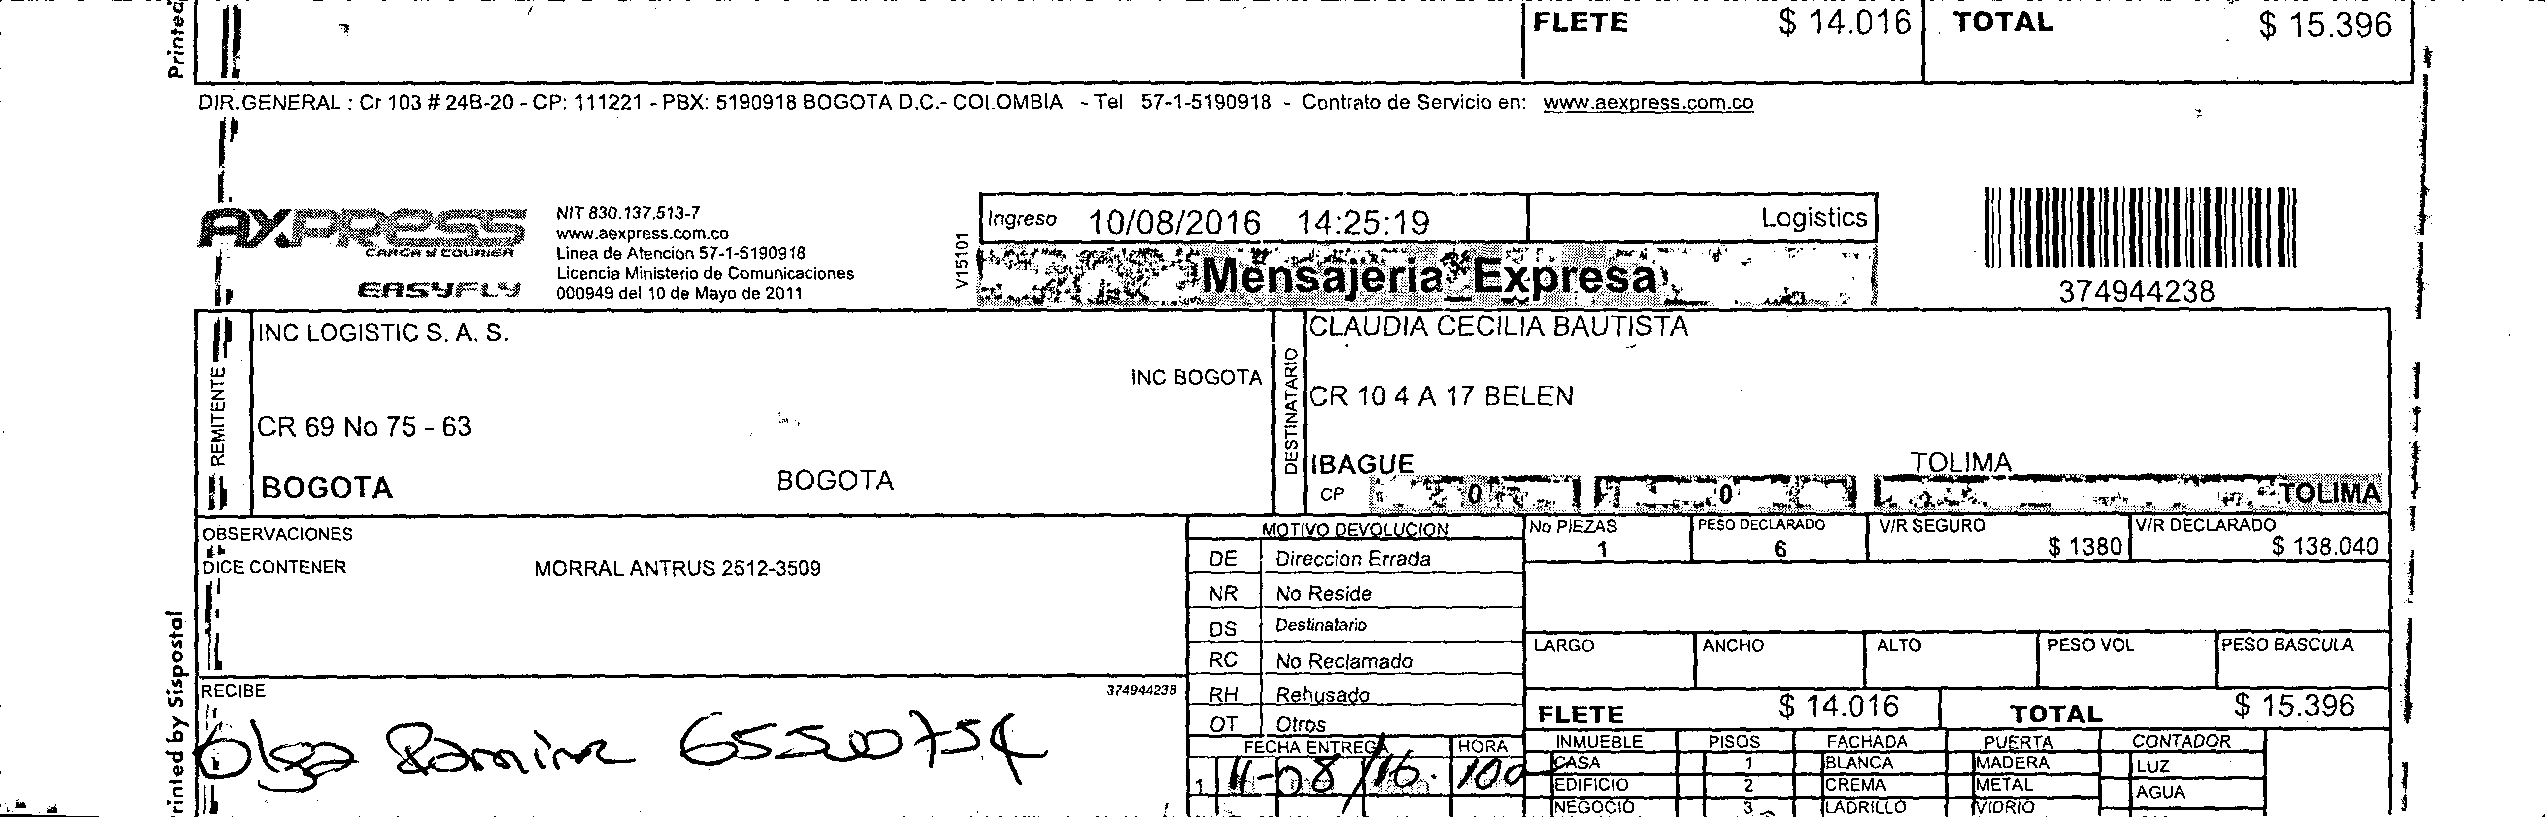 FLETE $ 14.016 TOTAL $ 15.396
DIR.GENERAL : Cr 103 # 24B-20 - CP: 111221 - PBX: 5190918 BOGOTA D.C.- COLOMBIA - Tel 57-1-5190918 - Contrato de Servicio en: www.aexpress.com.co
AXPRESS
CARGA Y COURIER
EASYFLY
NIT 830.137.513-7
www.aexpress.com.co
Linea de Atencion 57-1-5190918
Licencia Ministerio de Comunicaciones
000949 del 10 de Mayo de 2011
V15101
Ingreso 10/08/2016 14:25:19 Logistics
Mensajeria Expresa
374944238
REMITENTE
INC LOGISTIC S. A. S.
INC BOGOTA
CR 69 No 75 - 63
BOGOTA BOGOTA
DESTINATARIO
CLAUDIA CECILIA BAUTISTA
CR 10 4 A 17 BELEN
IBAGUE TOLIMA
CP 0 0 TOLIMA
OBSERVACIONES
DICE CONTENER MORRAL ANTRUS 2512-3509
MOTIVO DEVOLUCION
DE Direccion Errada
NR No Reside
DS Destinatario
RC No Reclamado
RH Rehusado
OT Otros
No PIEZAS PESO DECLARADO V/R SEGURO V/R DECLARADO
1 6 $ 1380 $ 138.040
LARGO ANCHO ALTO PESO VOL PESO BASCULA
FLETE $ 14.016 TOTAL $ 15.396
RECIBE 374944238
Olga
FECHA ENTREGA HORA
1 11-08/16. 100
INMUEBLE PISOS FACHADA PUERTA CONTADOR
CASA 1 BLANCA MADERA LUZ
EDIFICIO 2 CREMA METAL AGUA
NEGOCIO 3 LADRILLO VIDRIO
Printed by Sispostal